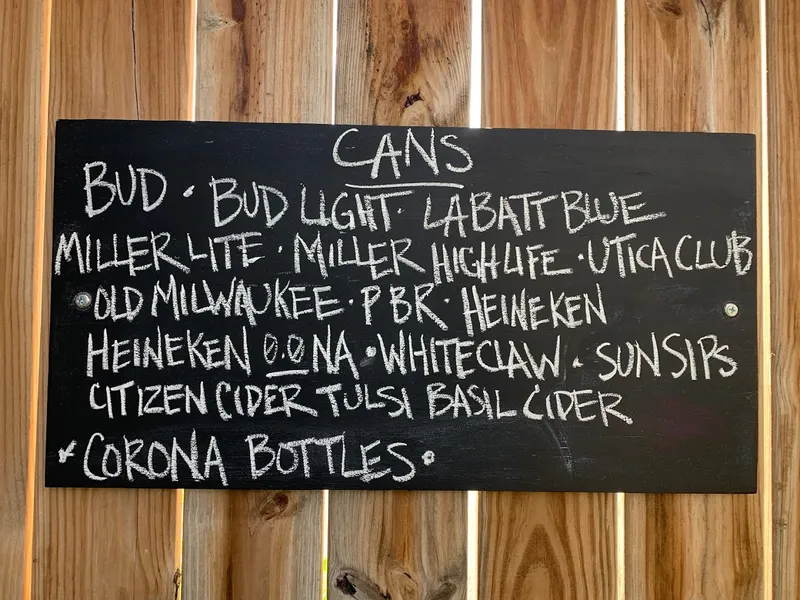 CANS
BUD · BUD LIGHT · LABATT BLUE
MILLER LITE · MILLER HIGH LIFE · UTICA CLUB
· OLD MILWAUKEE · PBR · HEINEKEN
HEINEKEN 0.0 NA · WHITECLAW · SUN SIPS
CITIZEN CIDER TULSI BASIL CIDER
· CORONA BOTTLES ·